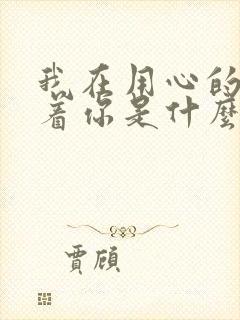 我在用心的
着你是什麼
賈頎